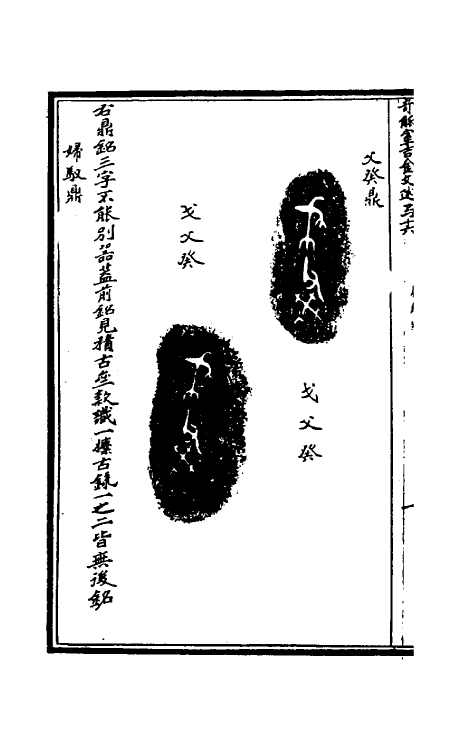 奇觚室吉金文述
父癸鼎
戈父癸
戈父癸
右鼎銘三字不能別器蓋前銘見積古垒款識一攈古錄一之二皆無後銘
婦馭鼎